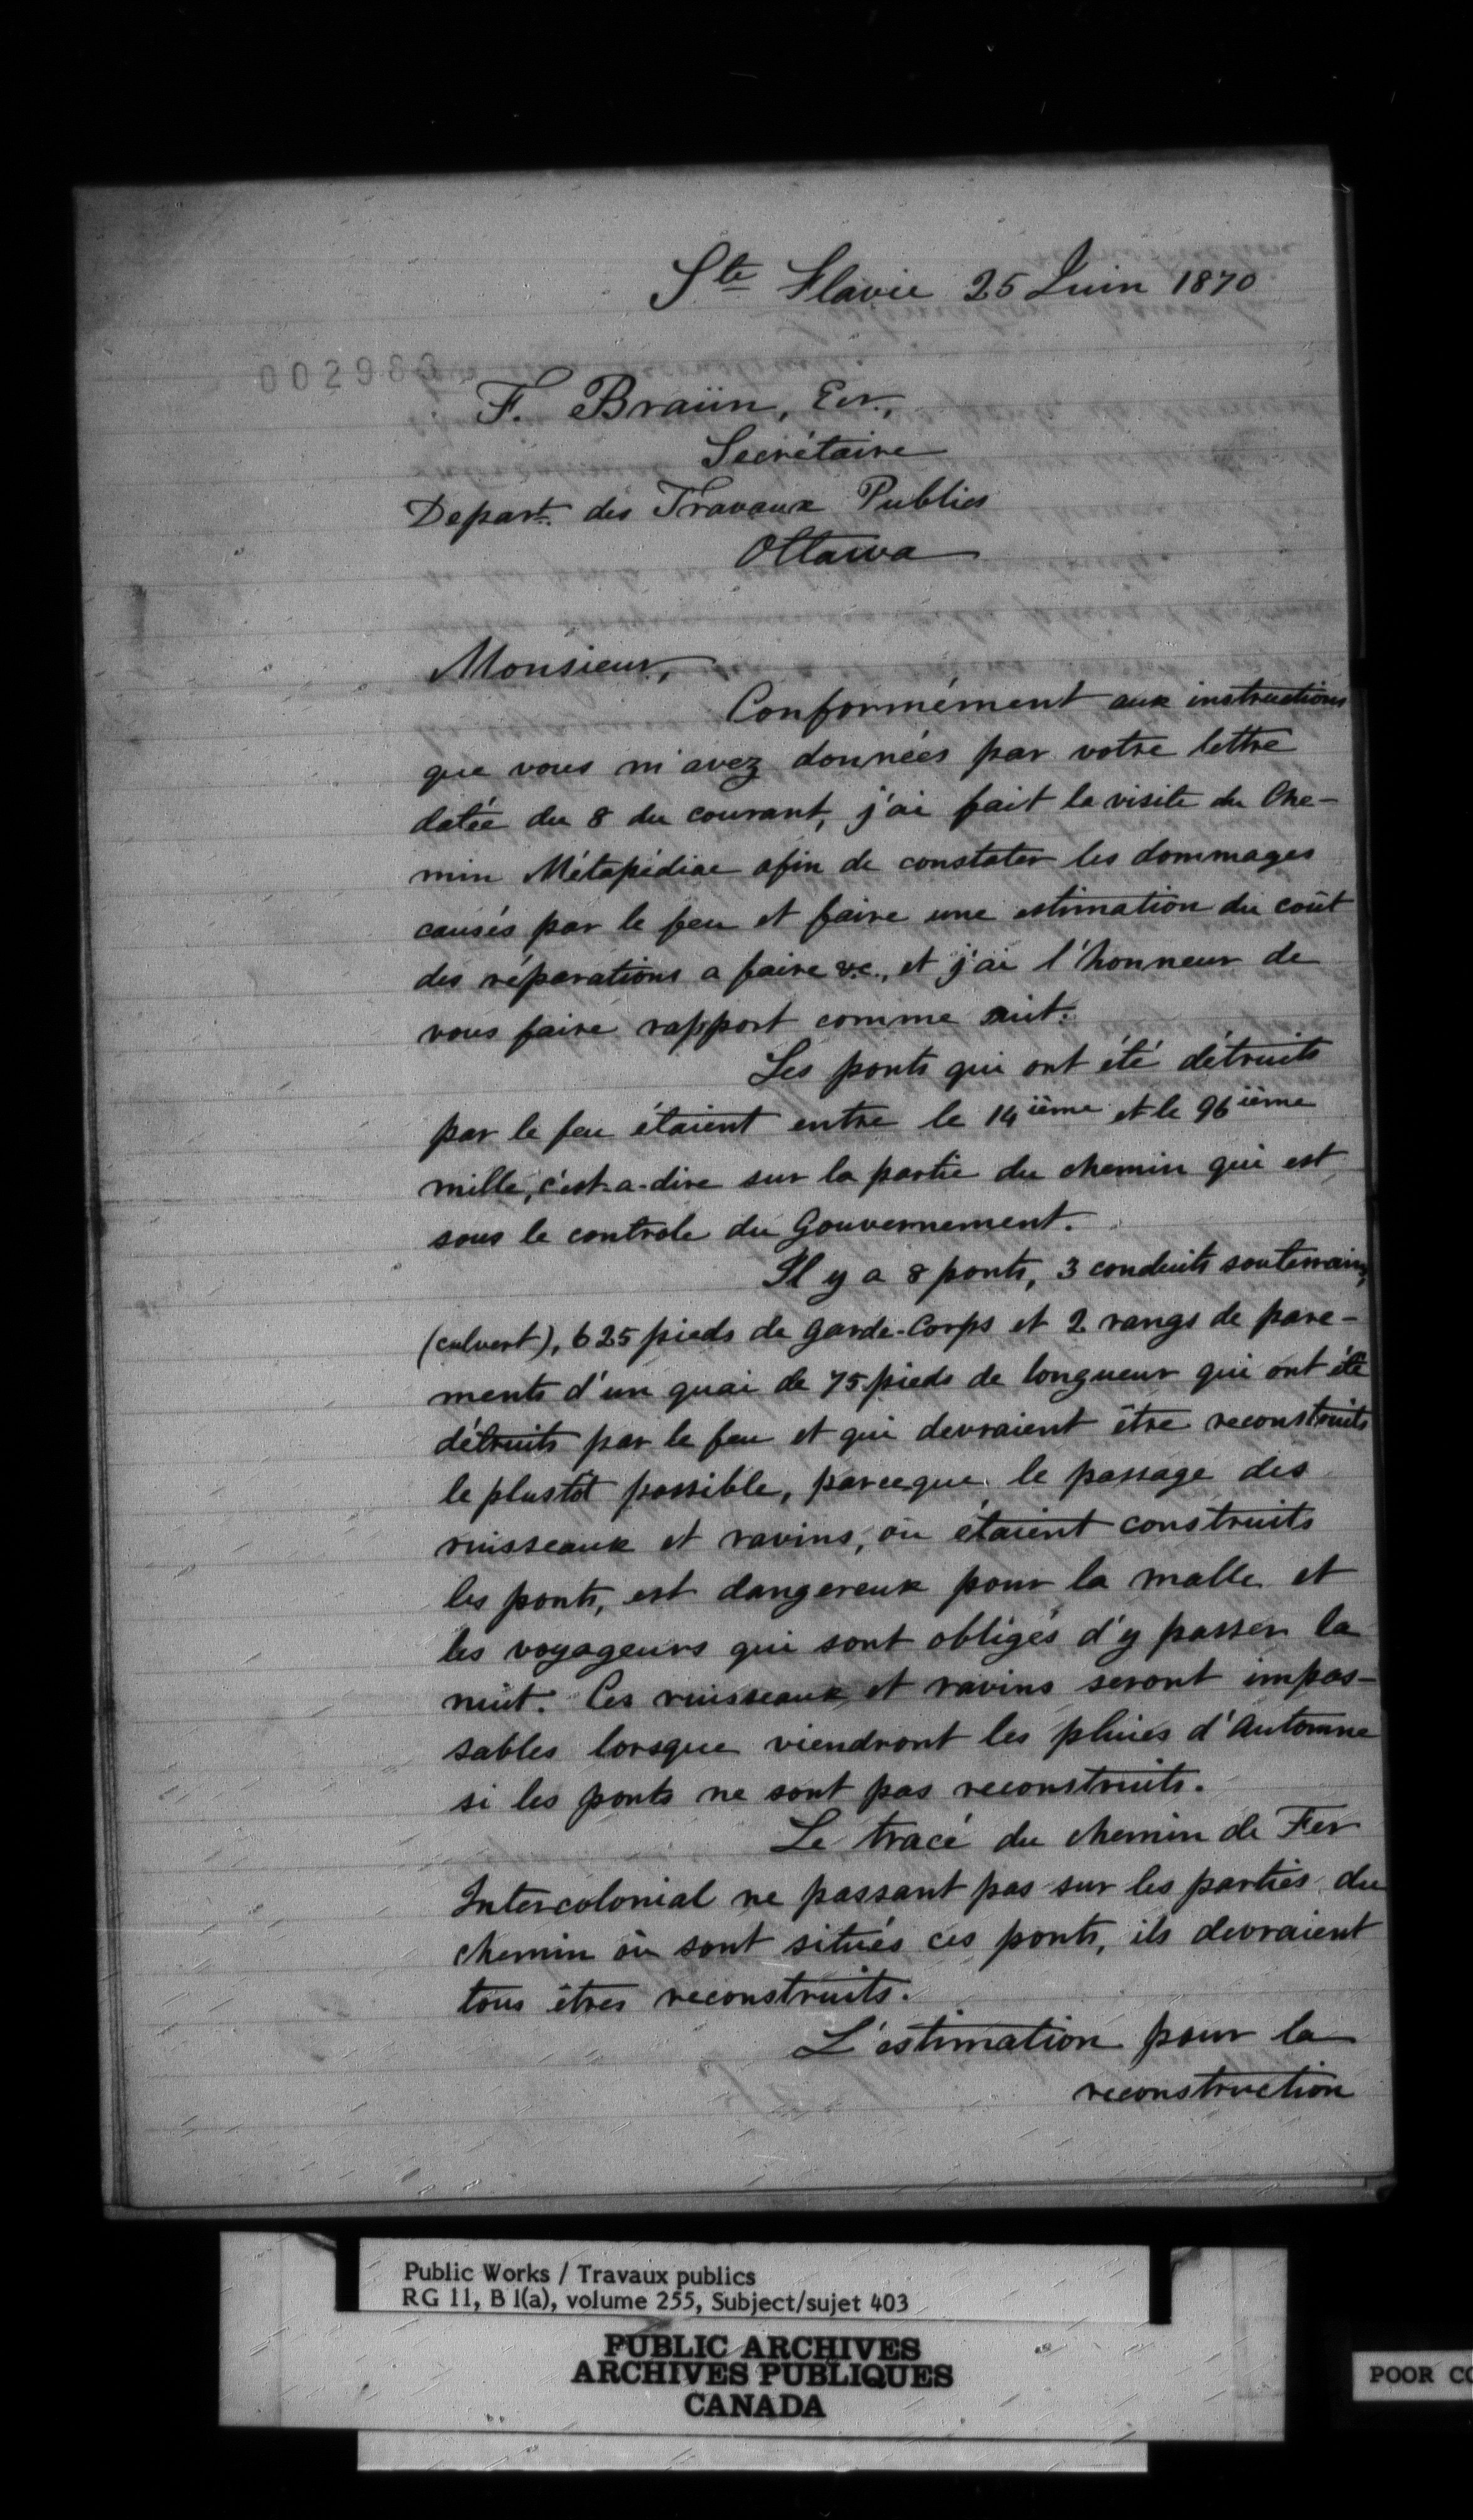 Ste Flavie 25 Juin 1870
F. Braün, Ecr.,
Secrétaire
Depart. des Travaux Publics
Ottawa
Monsieur,
Conformément aux instructions
que vous m'avez données par votre lettre
datée du 8 du courant, j'ai fait la visite du Che-
min Métapédiac afin de constater les dommages
causés par le feu et faire une estimation du coût
des réparations a faire &c., et j'ai l'honneur de
vous faire rapport comme suit.
Les ponts qui ont été détruits
par le feu étaient entre le 14ième et le 96ième
mille, c'est-a-dire sur la partie du chemin qui est
sous le controle du Gouvernement.
Il y a 8 ponts, 3 conduits souterrains,
(culvert), 625 pieds de garde-Corps et 2 rangs de pare-
ments d'un quai de 75 pieds de longueur qui ont été
détruits par le feu et qui devraient être reconstruits
le plustôt possible, parceque le passage des
ruisseaux et ravins, où étaient construits
les ponts, est dangereux pour la malle et
les voyageurs qui sont obligés d'y passer la
nuit. Ces ruisseaux et ravins seront impas-
sables lorsque viendront les pluies d'Automne
si les ponts ne sont pas reconstruits.
Le tracé du chemin de Fer
Intercolonial ne passant pas sur les parties du
chemin où sont situés ces ponts, ils devraient
tous êtres reconstruits.
L'estimation pour la
reconstruction
Public Works / Travaux publics
RG 11, B 1(a), volume 255, Subject/sujet 403
PUBLIC ARCHIVES
ARCHIVES PUBLIQUES
CANADA
POOR